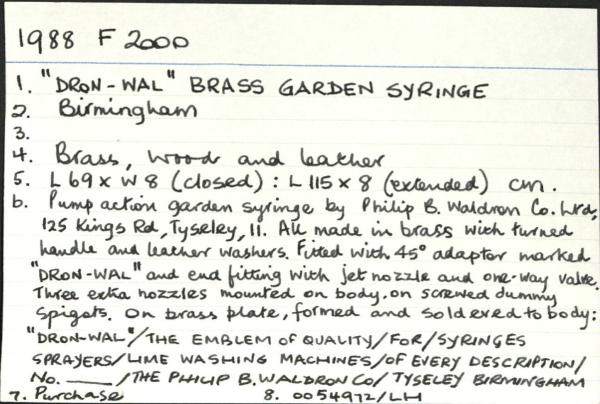 1988 F 2000
1. "DRON-WAL" BRASS GARDEN SYRINGE
2. Birmingham
3.
4. Brass, wood and leather
5. L 69 x W 8 (closed) : L 115 x 8 (extended) cm.
6. Pump action garden syringe by Philip B. Waldron Co. Ltd,
125 Kings Rd, Tyseley, 11. All made in brass with turned
handle and leather washers. Fitted with 45° adaptor marked
"DRON-WAL" and end fitting with jet nozzle and one-way valve.
Three extra nozzles mounted on body, on screwed dummy
spigots. On brass plate, formed and soldered to body:
"DRON-WAL"/THE EMBLEM OF QUALITY/FOR/SYRINGES
SPRAYERS/LIME WASHING MACHINES/OF EVERY DESCRIPTION/
No. ____/THE PHILIP B. WALDRON CO/TYSELEY BIRMINGHAM
7. Purchase 8. 0054972/LH